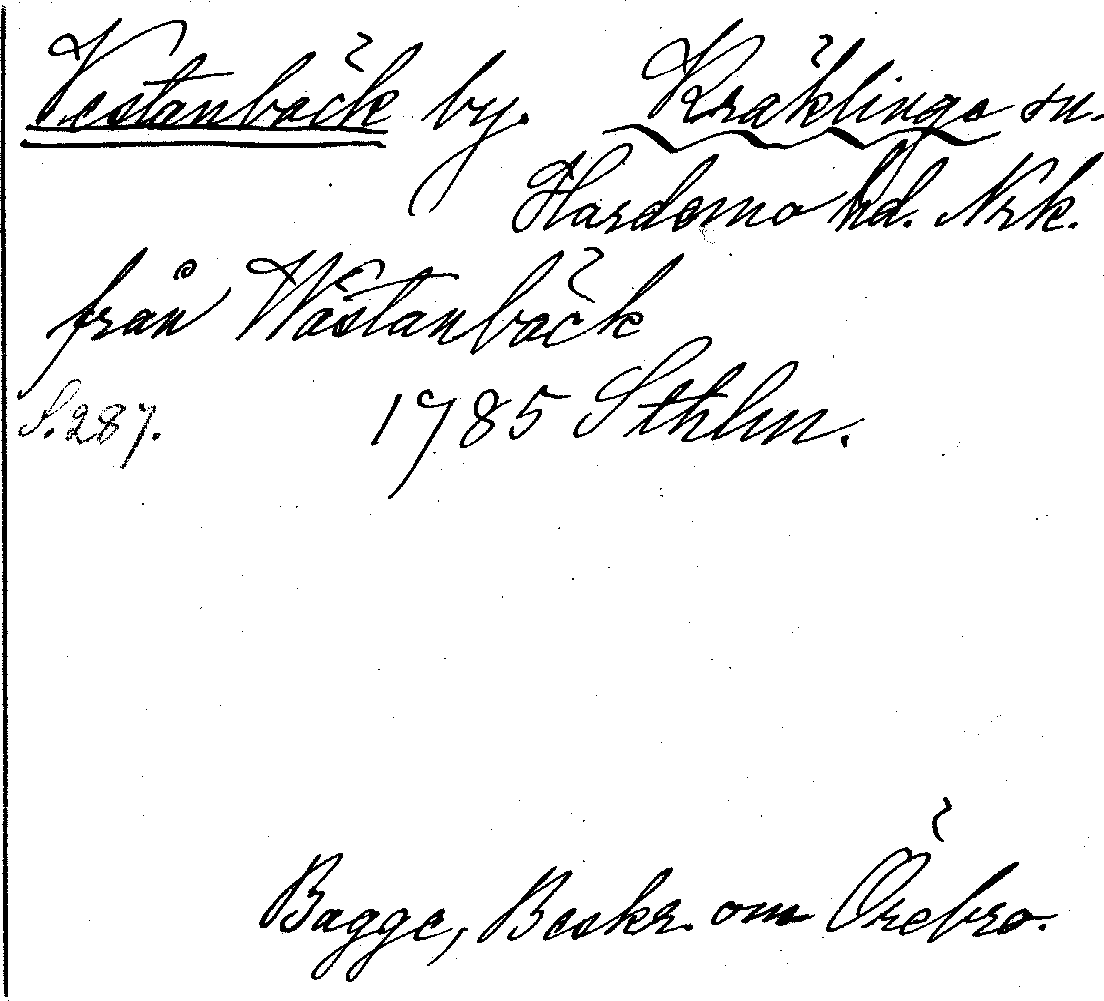 Vestanbäck by. Kräklinge sn.
Hardemo hd. Nrk.
från Wästanbäck
S. 287. 1785 Sthlm.
Bagge, Beskr. om Örebro.